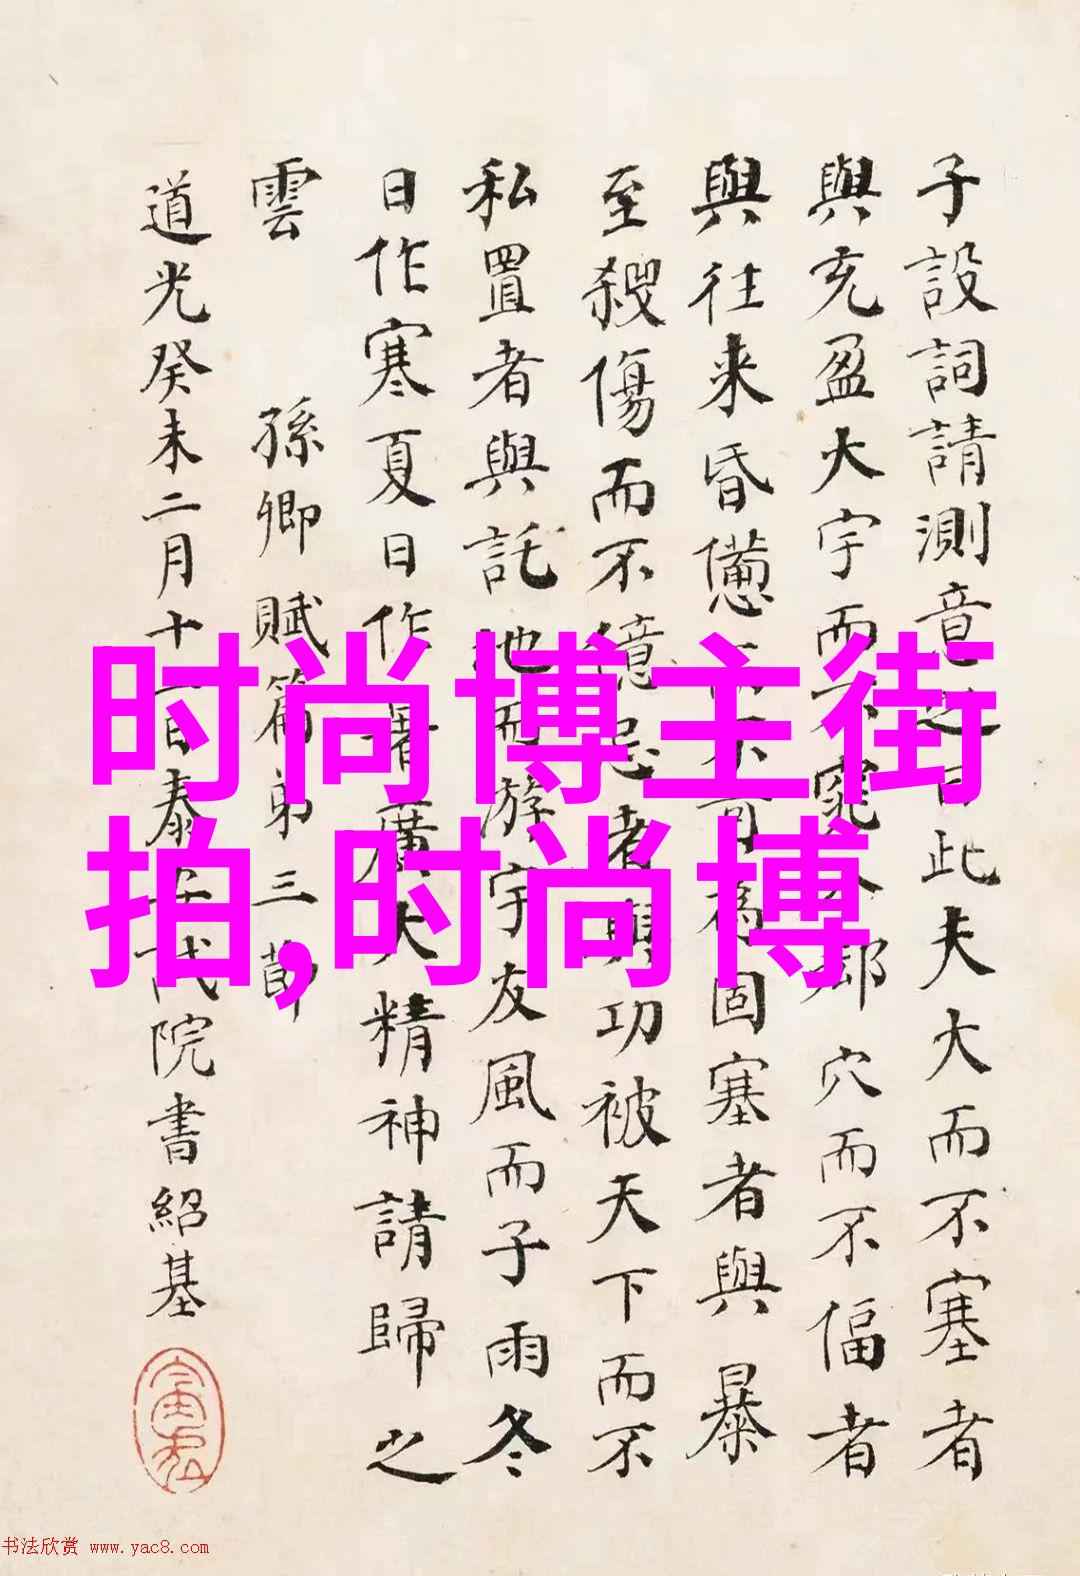 子設詞請測意之曰此夫大而不塞者
與充盈大宇而不窕入郄穴而不偪者
與往来昏憊而不可爲固塞者與暴
至殺傷而不億忌者與功被天下而不
私置者與託地而游宇友風而子雨冬
日作寒夏日作暑廣大精神請歸之
雲 孫卿賦篇弟三節
道光癸未二月十一日泰院書紹基
时尚博主街
拍,时尚博
书法欣赏 www.yac8.com